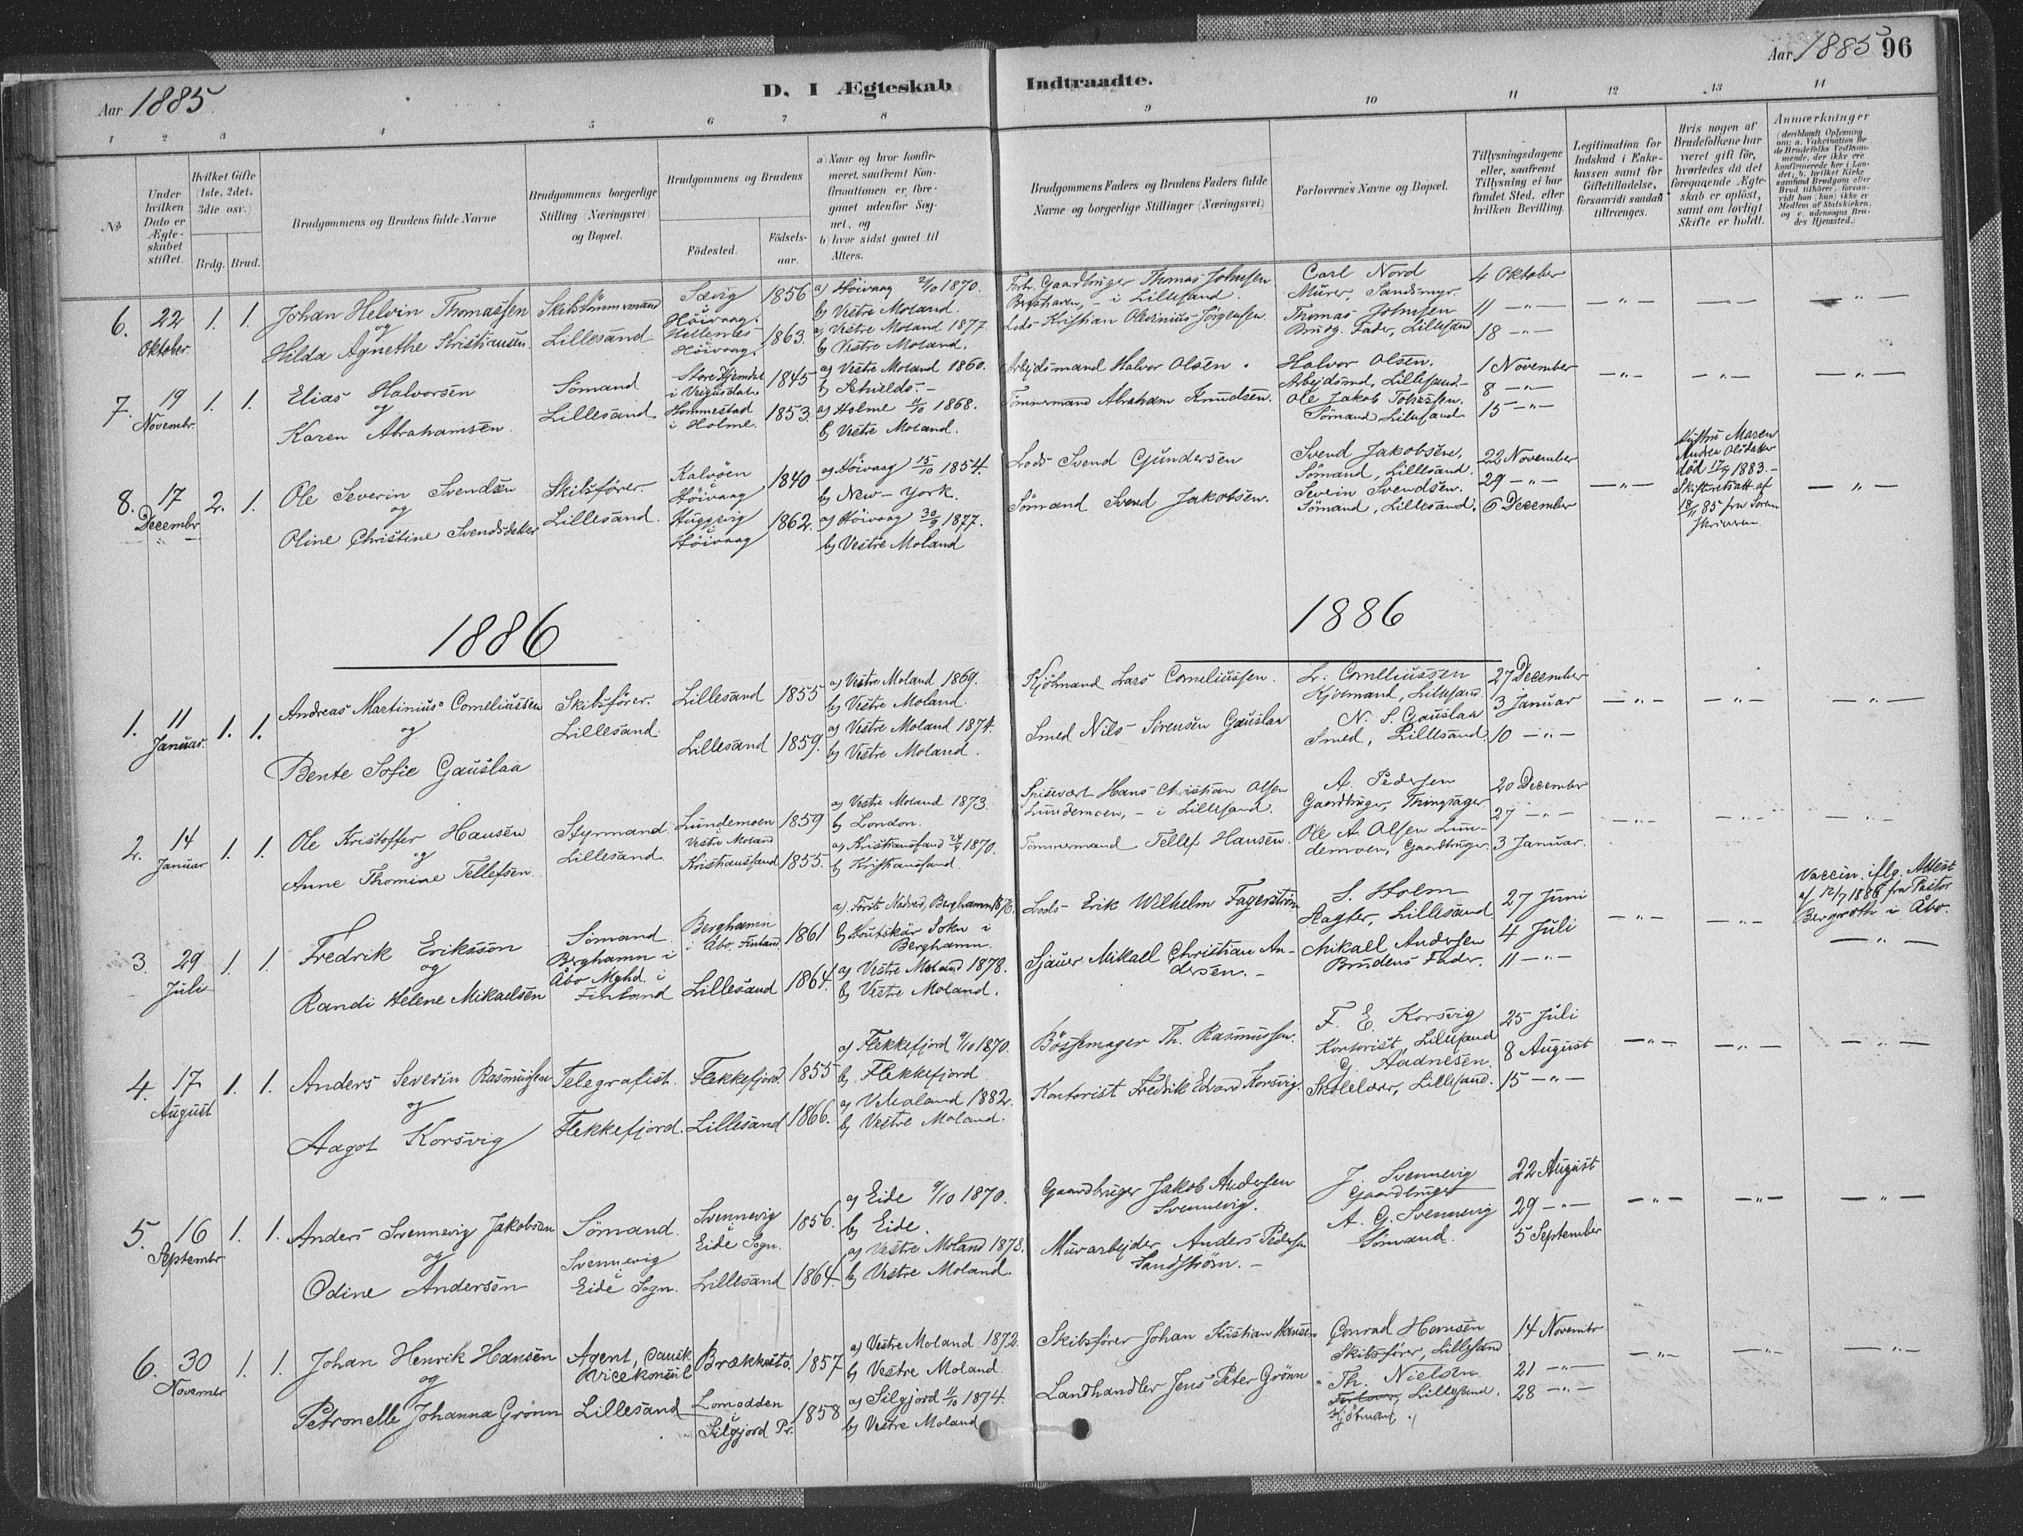 Aar 1885.
D. I Ægteskab
Indtraadte.
Aar 1885 96
1 2 3 4 5 6 7 8 9 10 11 12 13 14
No
Under hvilken Dato er Ægteskabet stiftet.
Hvilket Gifte (1ste, 2det, 3die osv.)
Brdg. Brud.
Brudgommens og Brudens fulde Navne
Brudgommens borgerlige Stilling (Næringsvei) og Bopæl.
Brudgommens og Brudens
Fødested.
Fødselsaar.
a) Naar og hvor konfirmeret, saafremt Konfirmationen er foregaaet udenfor Sognet, og
b) hvor sidst gaaet til Alters.
Brudgommens Faders og Brudens Faders fulde Navne og borgerlige Stillinger (Næringsvei)
Forlovernes Navne og Bopæl.
Tillysningsdagene eller, saafremt Tillysning ei har fundet Sted, efter hvilken Bevilling.
Legitimation for Indskud i Enkekassen samt for Giftetilladelse, forsaavidt saadan tiltrænges.
Hvis nogen af Brudefolkene har været gift før, hvorledes da det foregaaende Ægteskab er opløst, samt om lovligt Skifte er holdt.
Anmærkninger
(deriblandt Oplysning om: a. Vakcination for de Brudefolks Vedkommende, der ikke ere konfirmerede her i Landet, b. hvilket Kirkesamfund Brudgom eller Brud tilhører, forsaavidt han (hun) ikke er Medlem af Statskirken, og c. udensogns Brudes Hjemsted.)
6. 22 Oktober. 1. 1.
Johan Helvin Thomassen
og
Hilda Agnethe Kristiansen.
Skibstømmermand
Lillesand
Sævig
Høivaag. 1856
Høivaag. 1863.
a) Høivaag 2/10 1870.
b) Vestre Moland.
a) Vestre Moland 1877
b) Vestre Moland.
Forh. Gaardbruger Thomas Johnsen
i Lillesand.
Lods Kristian Olevinius Jörgensen
Carl Nord
Murer, Sandsmyr.
Thomas Johnsen
Brudg. Fader, Lillesand
4 Oktober
11 —"—
18 —"—
—"— —"— —"—
7. 19 Novembr. 1. 1.
Elias Halvorsen
og
Karen Abrahamsen.
Sømand
Lillesand.
i Veigusdal. 1845
Hommestad
i Holme. 1853.
a) Vestre Moland 1860.
b) Schields.-
a) Holme 4/10 1868.
b) Vestre Moland.
Arbejdsmand Halvor Olsen.
Tømmermand Abraham Knudsen.
Halvor Olsen.
Arbejdsmd, Lillesand.-
Ole Jakob
Sømand Lillesand
1 November
8 —"—
15 —"—
—"— —"— —"—
8. 17 Decembr 2. 1.
Ole Severin Svendsen
og
Oline Christine Svendsdatter
Skibsfører.
Lillesand.
Kalvöen
i
Høivaag 1840
Huggevig
i
Høivaag 1862.
a) Höivaag 15/10 1854.
b) New-York.
a) Höivaag 30/9 1877.
b) Vestre Moland
Lods Svend Gundersen
Sömand Svend Jakobsen.
Svend Jakobsen,
Sömand, Lillesand.
Severin Svendsen.
Sömand, Lillesand.
22 November
29 —"—
6 Decembr
—"—
Hustru Maren
Andrea Olsdatter
død 17/9 1883.-
Skifteretsatt af
18/11 85 fra Soren-
skriveren.
—"—
1886
1886
1. 11 Januar. 1. 1.
Andreas Martinius Corneliussen
og
Bente Sofie Gauslaa
Skibsfører.
Lillesand.
Lillesand 1855
Lillesand 1859.
a) Vestre Moland 1869.
b) Vestre Moland.
a) Vestre Moland 1874.
b) Vestre Moland.
Kjöbmand Lars Corneliussen.
Smed Nils Sörensen Gauslaa
L. Corneliussen
Kjöbmand, Lillesand.
N. S. Gauslaa
Smed, Lillesand.
27 December
3 Januar
10 —"—
—"— —"— —"—
2. 14 Januar 1. 1.
Ole Kristoffer Hansen
og
Anne Thomine Tellefsen.
Styrmand.
Lillesand.
Lundemoen
Vestre Moland 1859
Kristianssand 1855.
a) Vestre Moland 1873.
b) London.
a) Kristianssand 24/4 1870.
b) Kristianssand.
Spisevært Hans Christian Olsen
Lundemoen, - i Lillesand.
Tömmermand Tellef Hansen.
A. Pedersen
Gaardbruger, Tingsager
Ole A. Olsen Lun-
demoen, Gaardbruger.
20 December
27 —"—
3 Januar.
—"— —"— —"—
3. 29 Juli 1. 1.
Fredrik Eriksson
og
Randi Helene Mikaelsen
Sömand.
Berghamn i
Åbo Mghd. i
Finland
Berghamn
i Åbo, Finland 1861
Lillesand 1864.
a) Berghamn 1876.
b) Houtskär Sokn i
Berghamn.
a) Vestre Moland 1878.
b) Vestre Moland.
Lods Erik Wilhelm Fagerström
Sjauer Mikall Christian An-
dersen.-
S. Holm
Slagter, Lillesand
Mikall Andersen
Brudens Fader.
27 Juni
4 Juli
11 —"—
—"— —"—
Vaccin. iflg. Attest
af 12/7 1886 fra Pastor
Bergroth i Åbo.
—"—
4. 17 August 1. 1.
Anders Severin Rasmussen
og
Aagot Korsvig
Telegrafist.
Flekkefjord.
Flekkefjord. 1855
Lillesand 1866.
a) Flekkefjord 9/10 1870.
b) Flekkefjord
a) V. Moland 1882.
b) Vestre Moland.
Bössemager Th. Rasmussen.
Kontorist Fredrik Edvard Korsvig.
F. E. Korsvig
Kontorist, Lillesand
G. Aadnesen.
Skolelærer, Lillesand.
25 Juli
8 August
15 —"—
—"— —"— —"—
5. 16 Septembr 1. 1.
Anders Svennevig Jakobsen
og
Odine Andersen
Sömand.
Svennevig
i
Eide Sogn.
Svennevig
i
Eide Sogn. 1856.
Lillesand 1864.
a) Eide 9/10 1870.
b) Eide.
a) Vestre Moland 1878.
b) Vestre Moland.
Gaardbruger Jakob Andersen
Svennevig.
Murarbejder Anders Pedersen
Sandström.-
J. Svennevig
Gaardbruger
A. G. Svennevig
Sömand.
22 August
29 —"—
5 September
—"— —"— —"—
6. 30 Novembr 1. 1.
Johan Henrik Hansen
og
Petronelle Johanna Grönn
Agent, Dansk
Vicekonsul
Lillesand
Brækkestö. 1857
Lomodden
i
Silgjord Pr. 1858
a) Vestre Moland 1872.
b) Vestre Moland
a) Silgjord 11/10 1874.
b) Vestre Moland
Skibsförer Johan Kristian Hansen
Landhandler Jens Peter Grönn
Conrad Hansen
Skibsförer, Lillesand
Th. Nielsen
Lillesand.
Kjöbmand.
14 Novembr
21 —"—
28 —"—
—"— —"— —"—